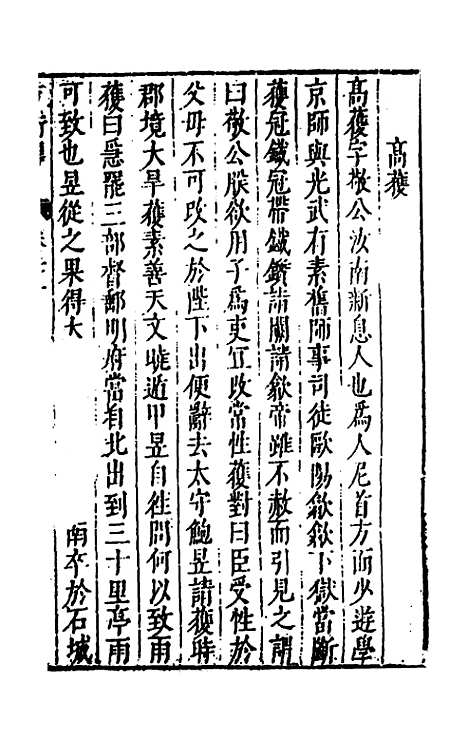 高獲
高獲字敬公汝南新息人也爲人尼首方面少遊學
京師與光武有素舊師事司徒歐陽歙歙下獄當斷
獲冠鐵冠帶鐵鑕請闕請歙帝雖不赦而引見之謂
曰敬公朕欲用子爲吏宜改常性獲對曰臣受性於
父母不可改之於陛下出便辭去太守鮑昱請獲時
郡境大旱獲素善天文曉遁甲昱自徃問何以致雨
獲曰急罷三部督郵明府當自北出到三十里亭雨
可致也昱從之果得大
南卒於石城